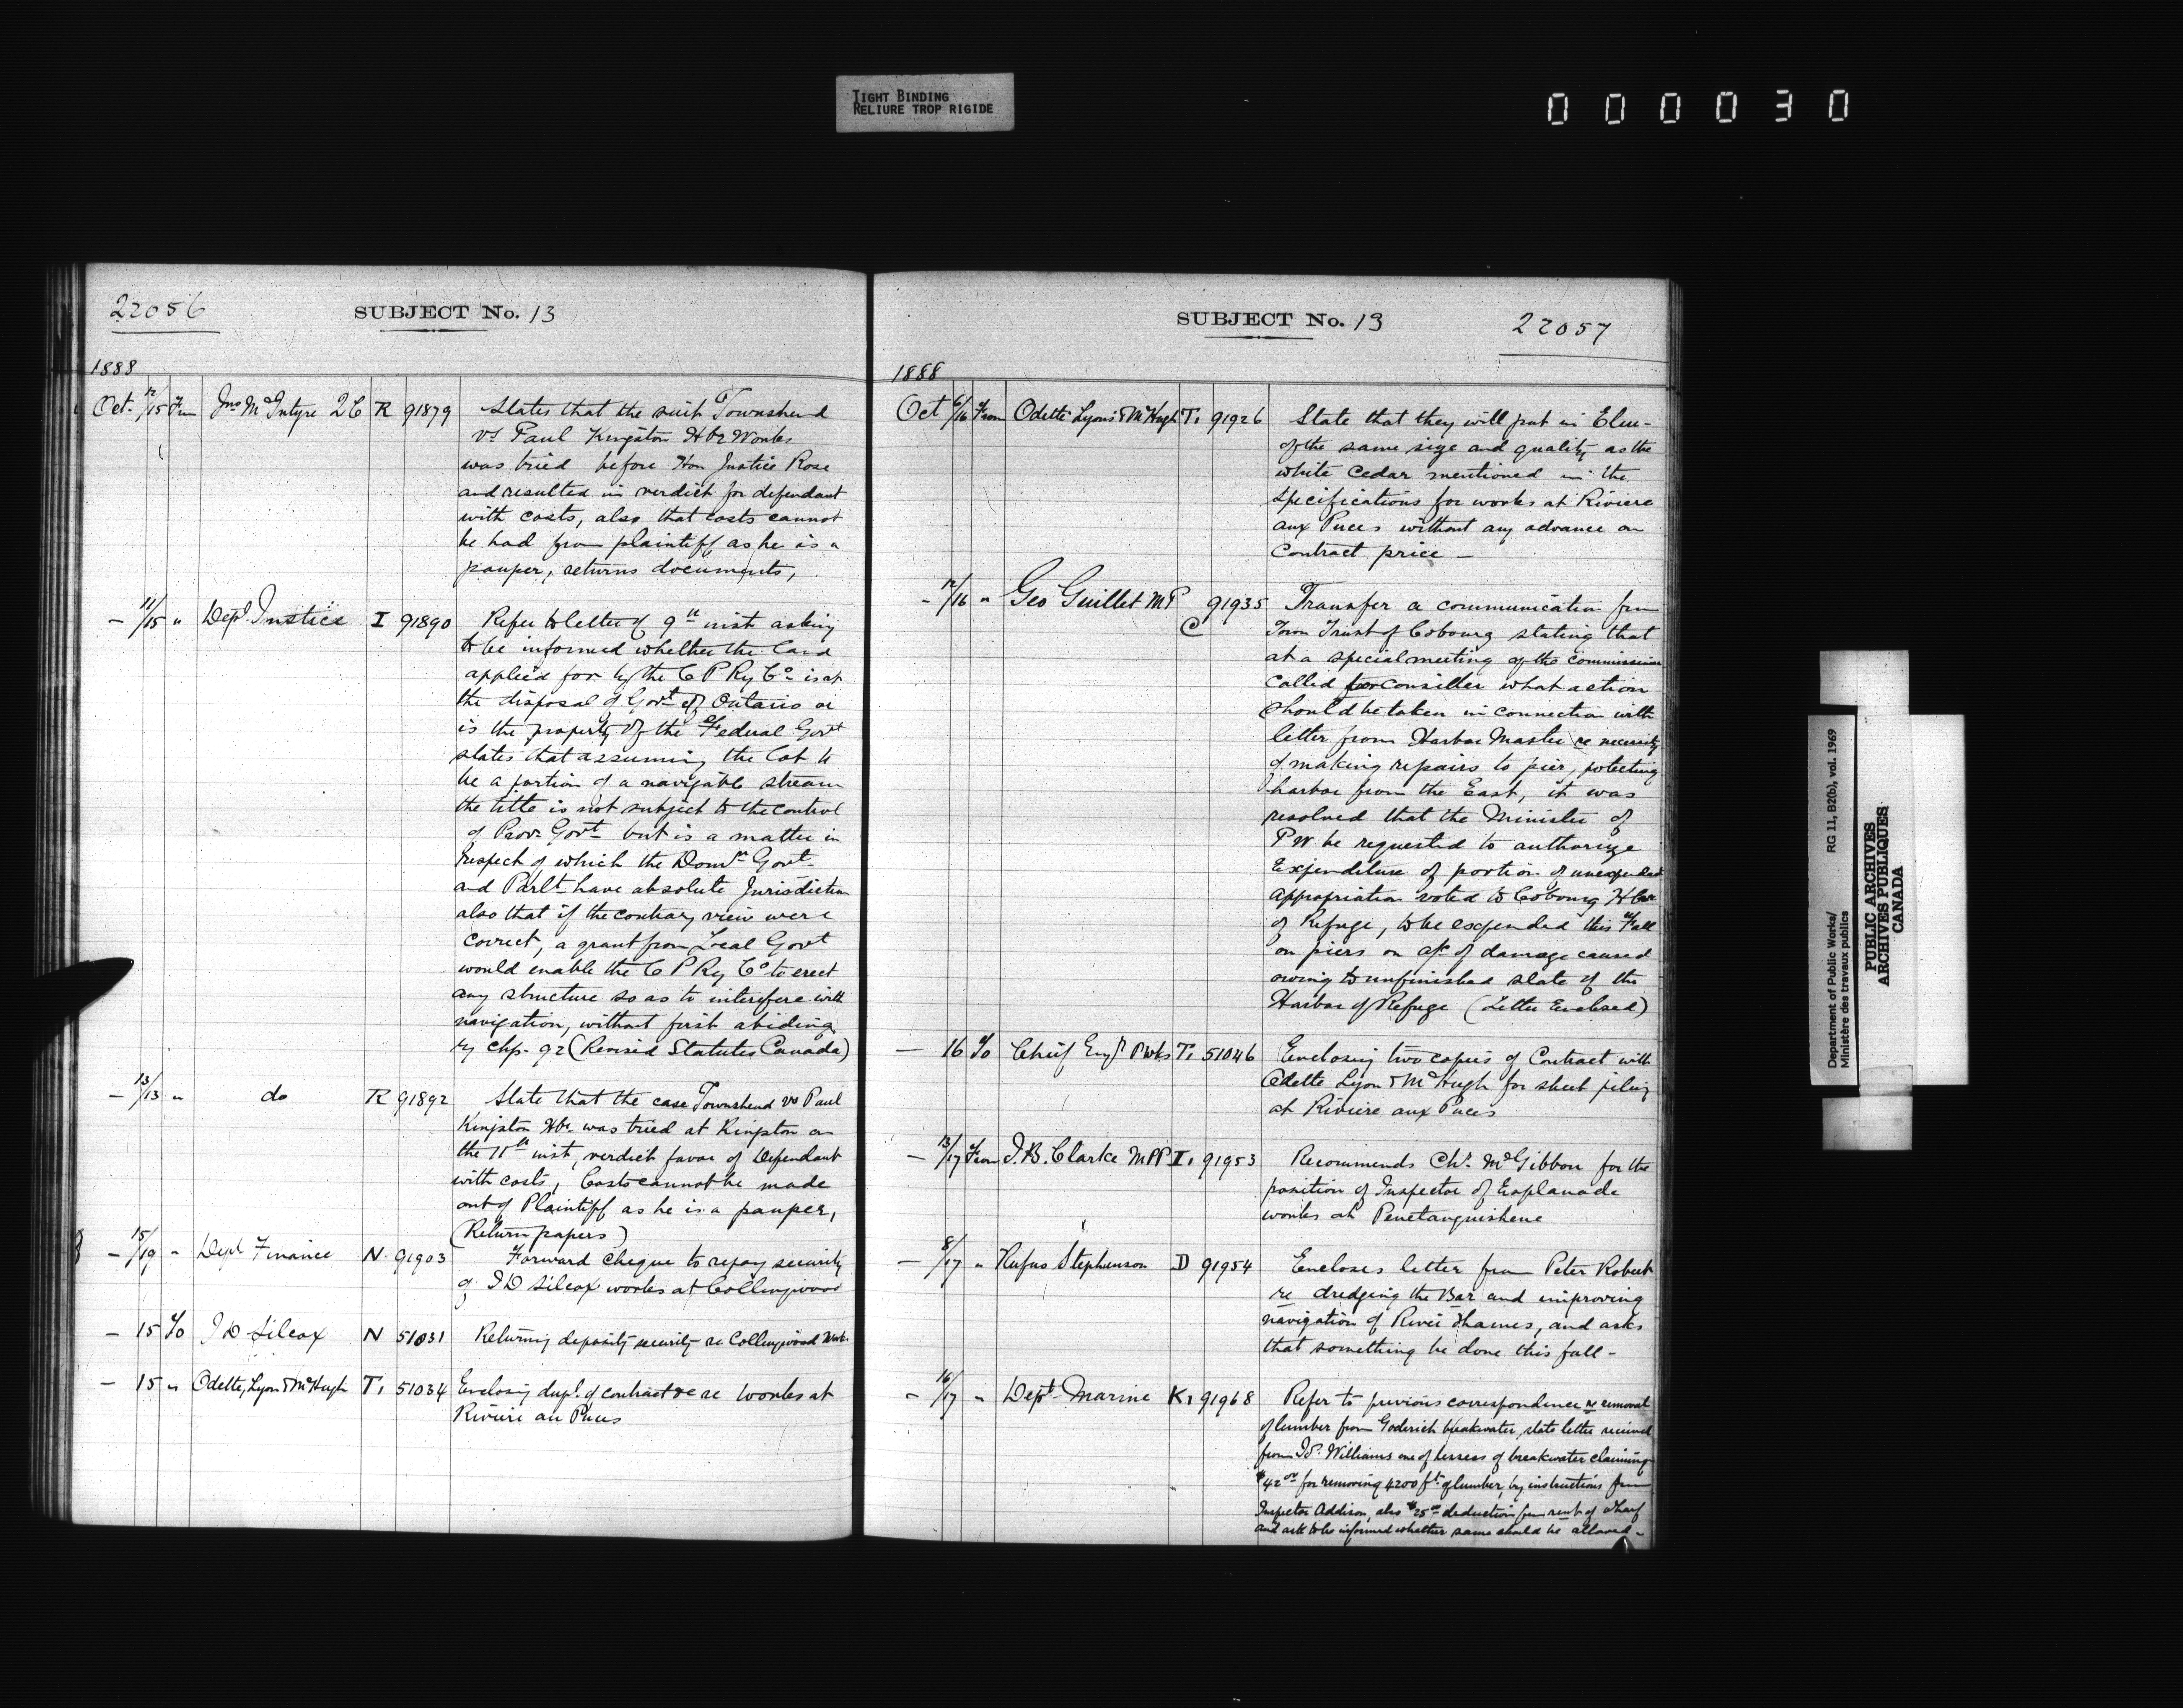 TIGHT BINDING
RELIURE TROP RIGIDE
000030
22056
SUBJECT No. 13
1888
Oct. 12/15 From Jno McIntyre QC R 91879 States that the suit Townshend
vs Paul Kingston Hbr Works
was tried before Hon Justice Rose
and resulted in verdict for defendant
with costs, also that costs cannot
be had from plaintiff as he is a
pauper, returns documents,
— 11/15 " Dept Justice I 91890 Refer to letter of 9th inst asking
to be informed whether the land
applied for by the C P Ry Co is at
the disposal of Govt of Ontario or
is the property of the Federal Govt
states that assuming the lot to
be a portion of a navigable stream
the title is not subject to the control
of Prov. Govt but is a matter in
respect of which the Domn Govt
and Parlt have absolute Jurisdiction
also that if the contrary view were
correct, a grant from Local Govt
would enable the C P Ry Co to erect
any structure so as to interefere with
navigation, without first abiding
by chp. 92 (Revised Statutes Canada)
— 13/13 " do R 91892 State that the case Townshend vs Paul
Kingston Hbr was tried at Kingston on
the 11th inst, verdict favor of Dependant
with costs, Costs cannot be made
out of Plaintiff as he is a pauper,
(Return papers)
— 15/19 " Dept Finance N. 91903 Forward cheque to repay security
of J D Silcox works at Collingwood
— 15 To J D Silcox N 51031 Returning deposit security re Collingwood Work.
— 15 " Odette, Lyon & McHugh T1 51034 Enclosing dupl. of contract &c re works at
Riviere au Puces
SUBJECT No. 13
22057
1888
Oct 6/16 From Odette Lyons & McHugh T1 91926 State that they will put in Elm
of the same size and quality as the
white cedar mentioned in the
specifications for works at Riviere
aux Puces without any advance on
contract price —
- 12/16 " Geo Guillet MP C 91935 Transfer a communication from
Town Trust of Cobourg stating that
at a special meeting of the commissioners
called for consider what action
should be taken in connection with
letter from Harbor Master re necessity
of making repairs to pier, potecting
harbor from the East, it was
resolved that the Minister of
P W be requested to authorize
Expenditure of portion of unexpended
appropriation voted to Cobourg Hbr
of Refuge, to be expended this Fall
on piers on a/c of damage caused
owing to unfinished state of the
Harbor of Refuge (Letter Enclosed)
— 16 To Chief Engr P Wks T1 51046 Enclosing two copies of Contract with
Odette Lyon & McHugh for sheet piling
at Riviere aux Puces
— 13/17 From J. B. Clarke MPP I1 91953 Recommends Chs McGibbon for the
position of Inspector of Esplanade
works at Penetanguishene
— 8/17 " Rufus Stephenson D 91954 Encloses letter from Peter Robert
re dredging the Bar and improving
navigation of River Thames, and asks
that something be done this fall -
- 16/17 " Dept Marine K1 91968 Refer to previous correspondence re removal
of lumber from Goderich breakwater, state letter received
from Williams one of lessees of breakwater claiming
$42.00 for removing 4200 ft of lumber, by instructions from
Inspector Addison, also $25.00 deduction from rent of wharf
and ask to be informed whether same should be allowed -
Department of Public Works/
Ministère des travaux publics
RG 11, B2(b), vol. 1969
PUBLIC ARCHIVES
ARCHIVES PUBLIQUES
CANADA